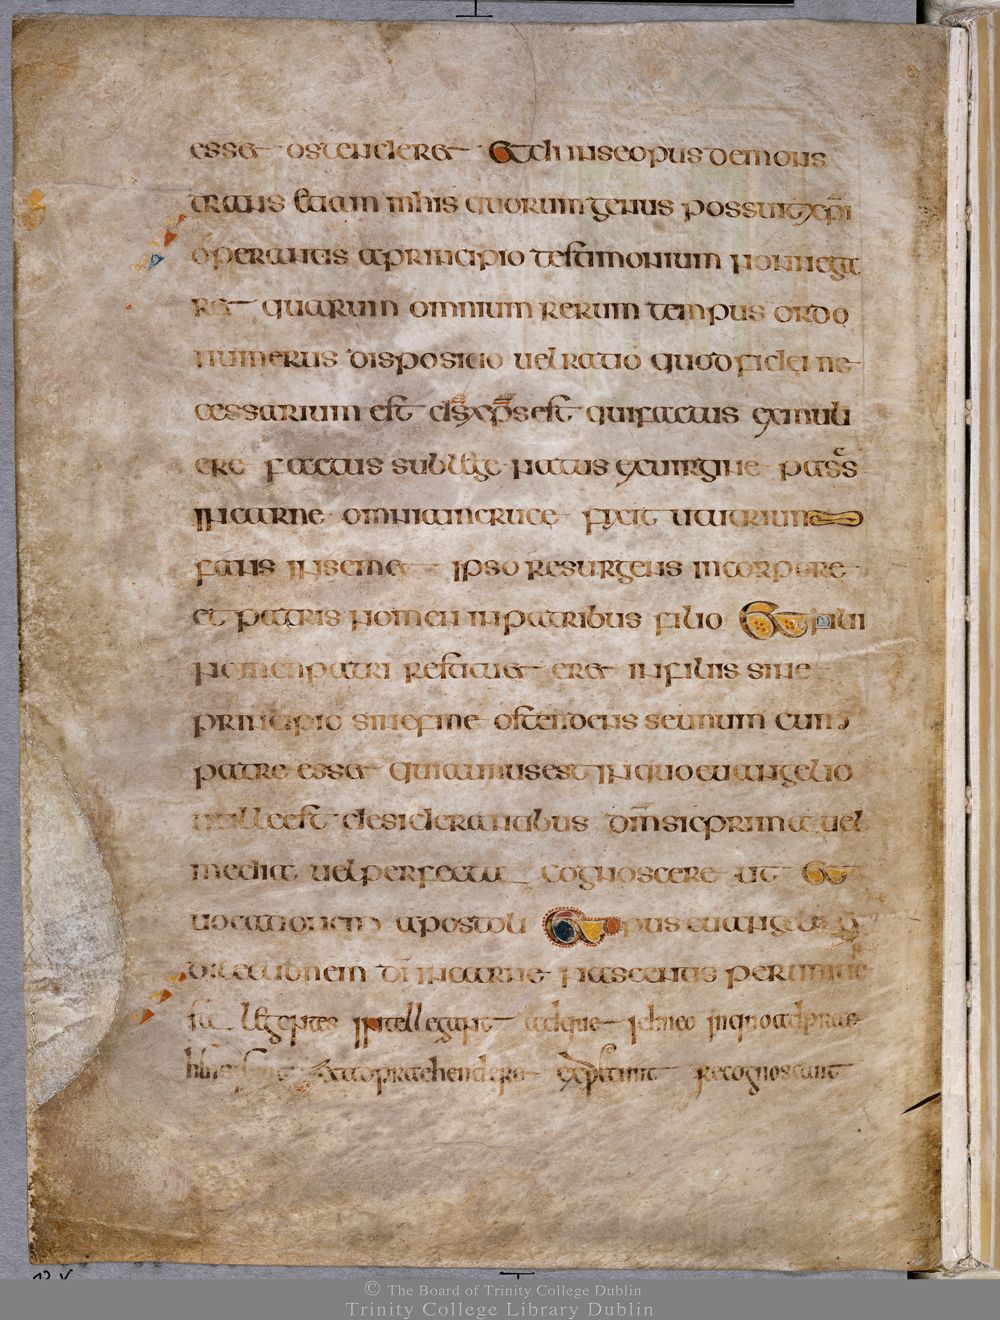 esse ostendere Et eius eopus demons
trans etiam inhis quorum genus possuit xpi
operantis aprincipio testimonium nonnega
re quarum omnium rerum tempus ordo
numerus dispositio uel ratio quod fidei ne
cessarium est ds xps est qui factus ex muli
ere factus sub lege natus ex uirgine passs
in carne omnia in cruce fixit ut triumm
fans in seme ipso resurgens in corpore
et patris nomen in patribus filio Et filii
nomen patri restituere in filiis sine
principio sine fine ostendens se unum cum
patre esse qui unus est in quo euangelio
utile est desiderantibus dm sic prima uel
media uel perfecta cognoscere ut Et
uocationem apostoli Et opus euangelii
dilectionem di in carne nascentis per uniue
legentes intellegant adque id in eo in quo adprae
adpraehendere expetunt recognoscant
© The Board of Trinity College Dublin
Trinity College Library Dublin